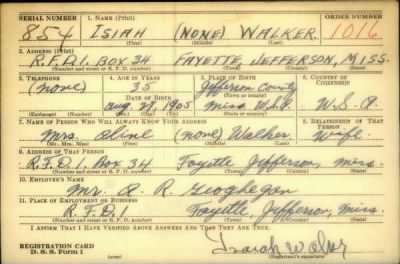 SERIAL NUMBER 1. NAME (Print) ORDER NUMBER
854 ISIAH (NONE) WALKER 1016
(First) (Middle) (Last)
2. ADDRESS (Print)
R.F.D.1. BOX 34 FAYETTE, JEFFERSON, MISS.
(Number and street or R. F. D. number) (Town) (County) (State)
3. TELEPHONE 4. AGE IN YEARS 5. PLACE OF BIRTH 6. COUNTRY OF CITIZENSHIP
(none) 35 Jefferson County
DATE OF BIRTH
Aug. 27, 1905 Miss. U.S.A. U.S.A.
(Exchange) (Number) (Mo.) (Day) (Yr.) (State or country)
7. NAME OF PERSON WHO WILL ALWAYS KNOW YOUR ADDRESS 8. RELATIONSHIP OF THAT PERSON
Mrs. Oline (none) Walker Wife.
(Mr., Mrs., Miss) (First) (Middle) (Last)
9. ADDRESS OF THAT PERSON
R.F.D.1. Box 34 Fayette, Jefferson, Miss.
(Number and street or R. F. D. number) (Town) (County) (State)
10. EMPLOYER'S NAME
Mr. A. R. Geoghegan
11. PLACE OF EMPLOYMENT OR BUSINESS
R.F.D.1 Fayette, Jefferson, Miss.
(Number and street or R. F. D. number) (Town) (County) (State)
I AFFIRM THAT I HAVE VERIFIED ABOVE ANSWERS AND THAT THEY ARE TRUE.
REGISTRATION CARD
D. S. S. Form 1 (over) (Registrant's signature)